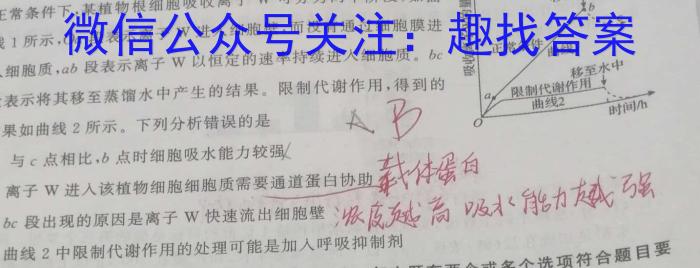 正常条件下,某植物根细胞吸收离子 W
线 1 所示,
微信公众号关注：趣找答案
入细胞质,ab 段表示离子 W 以恒定的速率持续进入细胞质。bc
表示将其移至蒸馏水中产生的结果。限制代谢作用,得到的
果如曲线 2 所示。下列分析错误的是
A B
与 c 点相比,b 点时细胞吸水能力较强
离子 W 进入该植物细胞细胞质需要通道蛋白协助 载体蛋白
bc 段出现的原因是离子 W 快速流出细胞壁 浓度越高 吸水能力越强
曲线 2 中限制代谢作用的处理可能是加入呼吸抑制剂
个选项符合题目要
移至水中
a
限制代谢作用
曲线2
O
时间/h